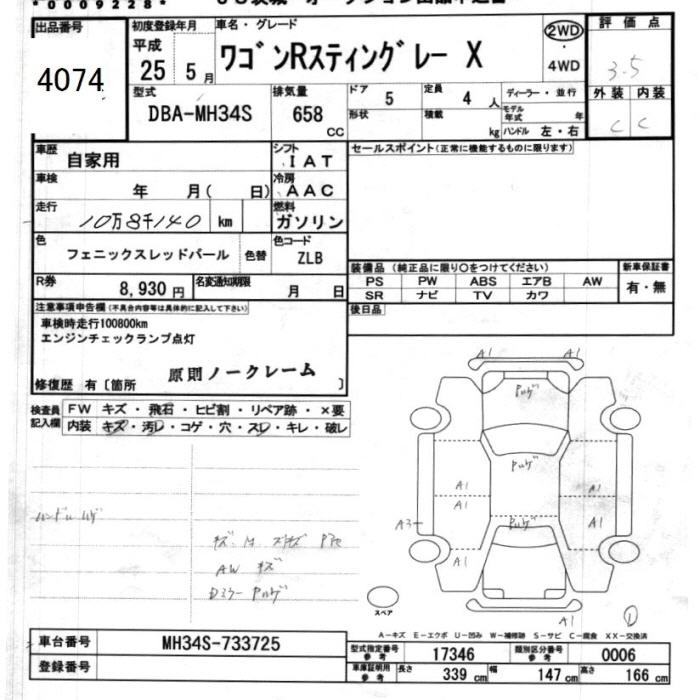 *0009228*
出品番号
4074
初度登録年月
平成
25 5 月
車名・グレード
ワゴンRスティングレー X
2WD
・
4WD
評価点
3.5
外装 内装
C C
型式
DBA-MH34S
排気量
658
CC
ドア
5
定員
4 人
形状
積載
kg
ディーラー・並行
モデル年式 年
ハンドル 左・右
車歴
自家用
シフト
IAT
車検
年 月( 日)
冷房
AAC
走行
10万8千140 km
燃料
ガソリン
色
フェニックスレッドパール
色替
色コード
ZLB
R券
8,930 円
名変通知期限
月 日
セールスポイント(正常に機能するものに限ります)
装備品 (純正品に限り○をつけてください)
PS PW ABS エアB AW
SR ナビ TV カワ
新車保証書
有・無
後日品
注意事項申告欄(不具合内容等は具体的に記入して下さい)
車検時走行100800km
エンジンチェックランプ点灯
原則ノークレーム
修復歴 有〔箇所 〕
検査員
記入欄
FW キズ・飛石・ヒビ割・リペア跡・×要
内装 キズ・汚レ・コゲ・穴・スレ・キレ・破レ
AW キズ
A1 A1
A1 A1
A1
A3 A1
A1 A1
A1
スペア
A-キズ E-エクボ U-凹み W-補修跡 S-サビ C-腐食 XX-交換済
車台番号
MH34S-733725
登録番号
型式指定番号
参考
17346
類別区分番号
参考
0006
車庫証明用
参考
長さ 339 cm 幅 147 cm 高さ 166 cm